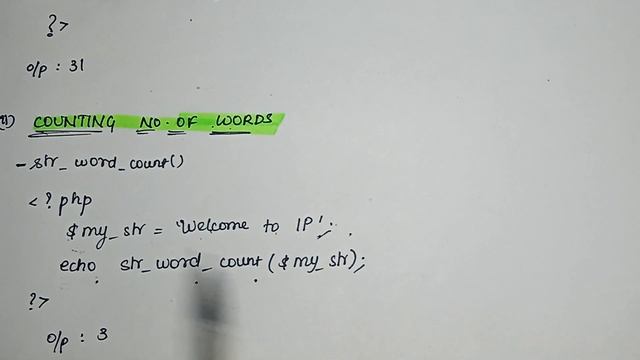 ?>
o/p : 31
COUNTING NO. OF WORDS
- str_word_count()
<?php
$my_str = 'Welcome to IP';
echo str_word_count($my_str);
?>
o/p : 3